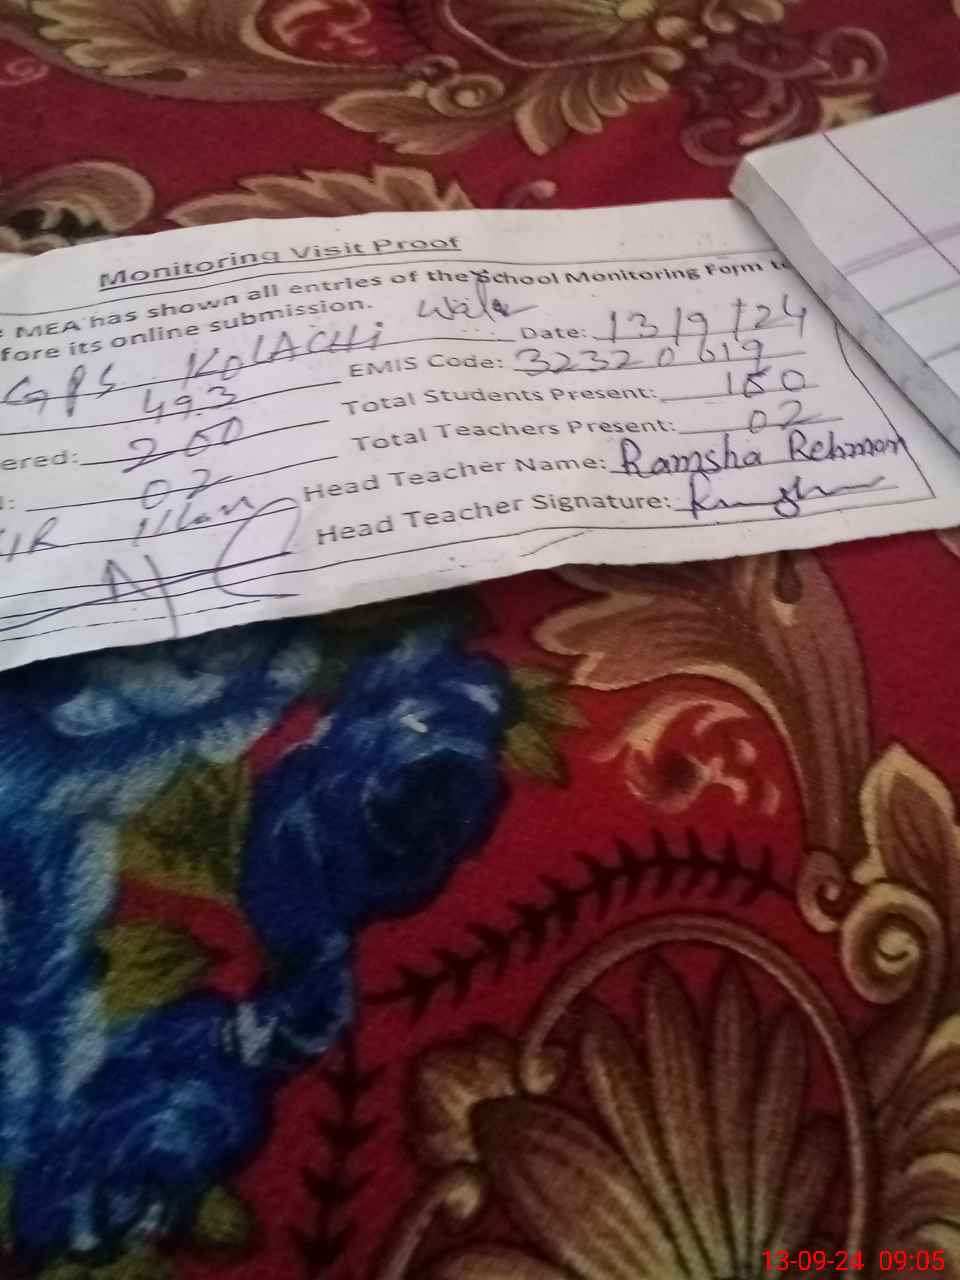 Monitoring Visit Proof
MEA has shown all entries of the School Monitoring Form to
fore its online submission.
GPS KOlACHi Wala Date: 13/9/24
49.3 EMIS Code: 32320619
ered: 200 Total Students Present: 180
: 02 Total Teachers Present: 02
Head Teacher Name: Ramsha Rehman
Head Teacher Signature:
13-09-24 09:05